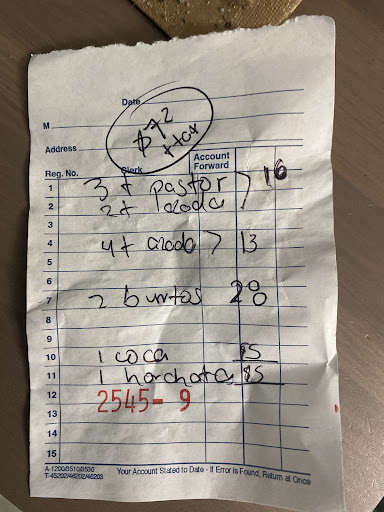 Date
$72
+tax
M
Address
Reg. No. Clerk Account Forward
1 3 t pastor
2 2t asada 16
3
4 4t asada 13
5
6
7 2 burritos 28
8
9
10 1 coca $5
11 1 horchata $5
12 2545- 9
13
14
15
A-1200/3510/3530
T-45202/46202/46203
Your Account Stated to Date - If Error is Found, Return at Once